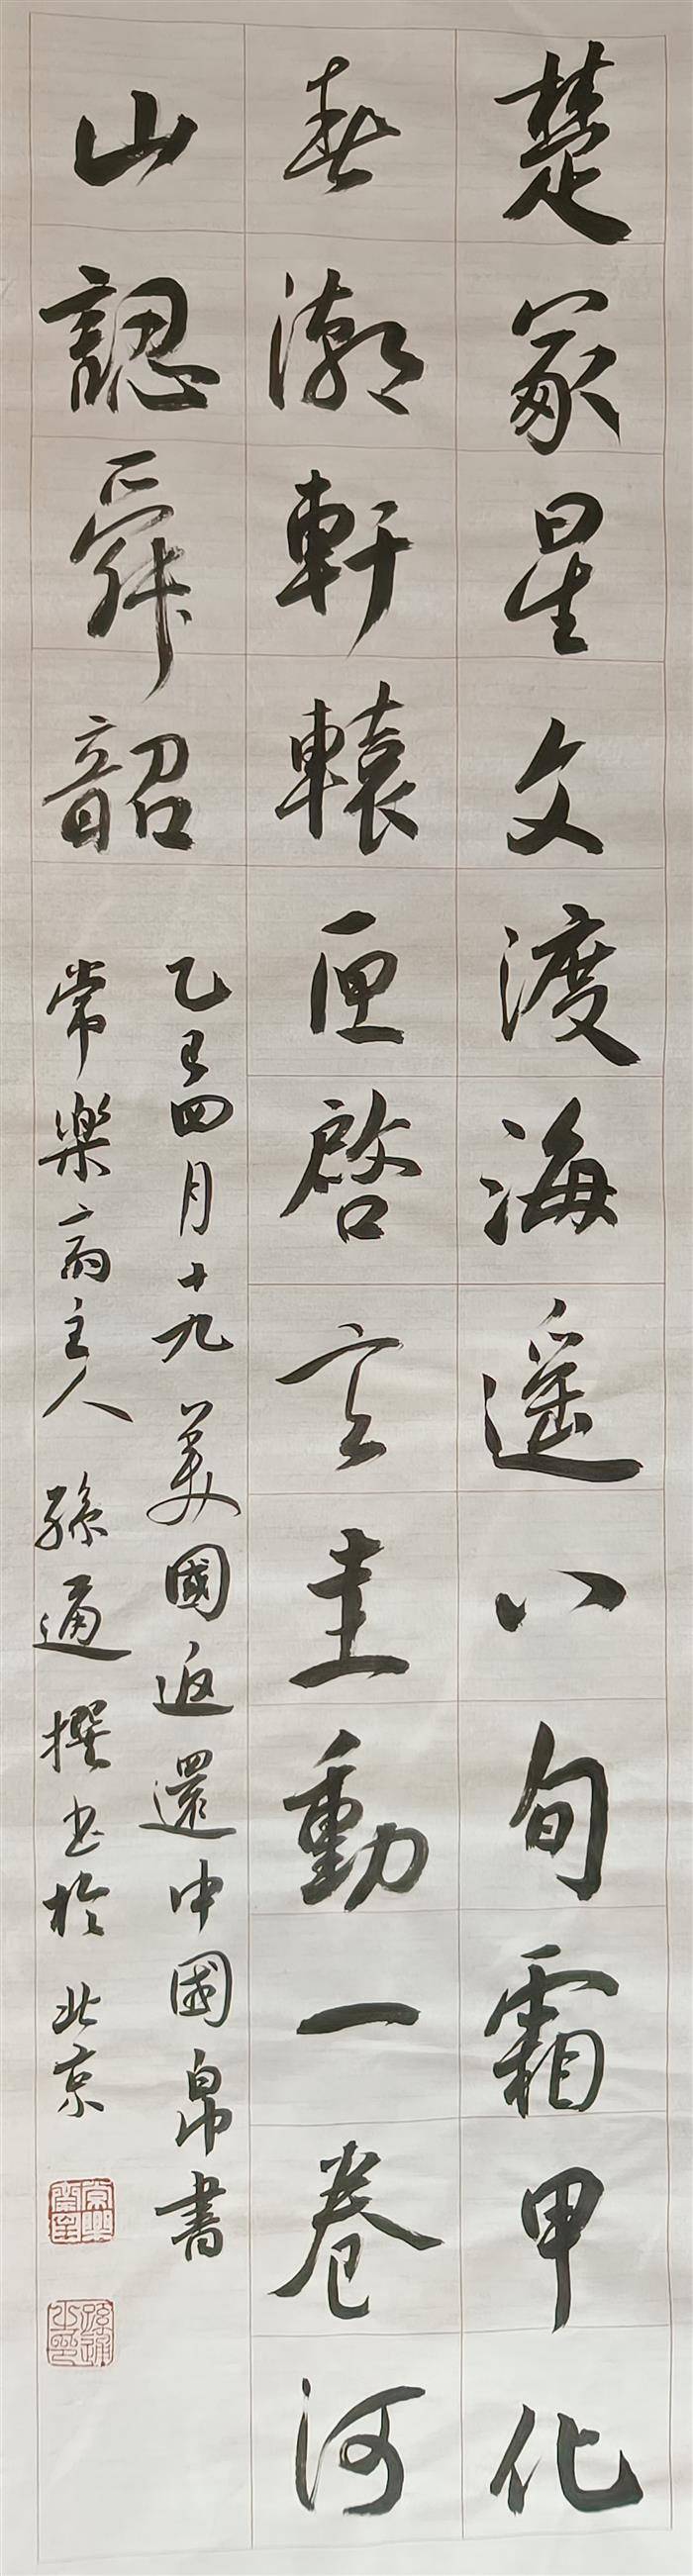 楚冢星文渡海遥八旬霜甲化
春潮軒轅匣啓玄圭動一卷河
山認舜韶
乙巳四月十九美國返還中國帛書
常樂齋主人孫通撰书於北京